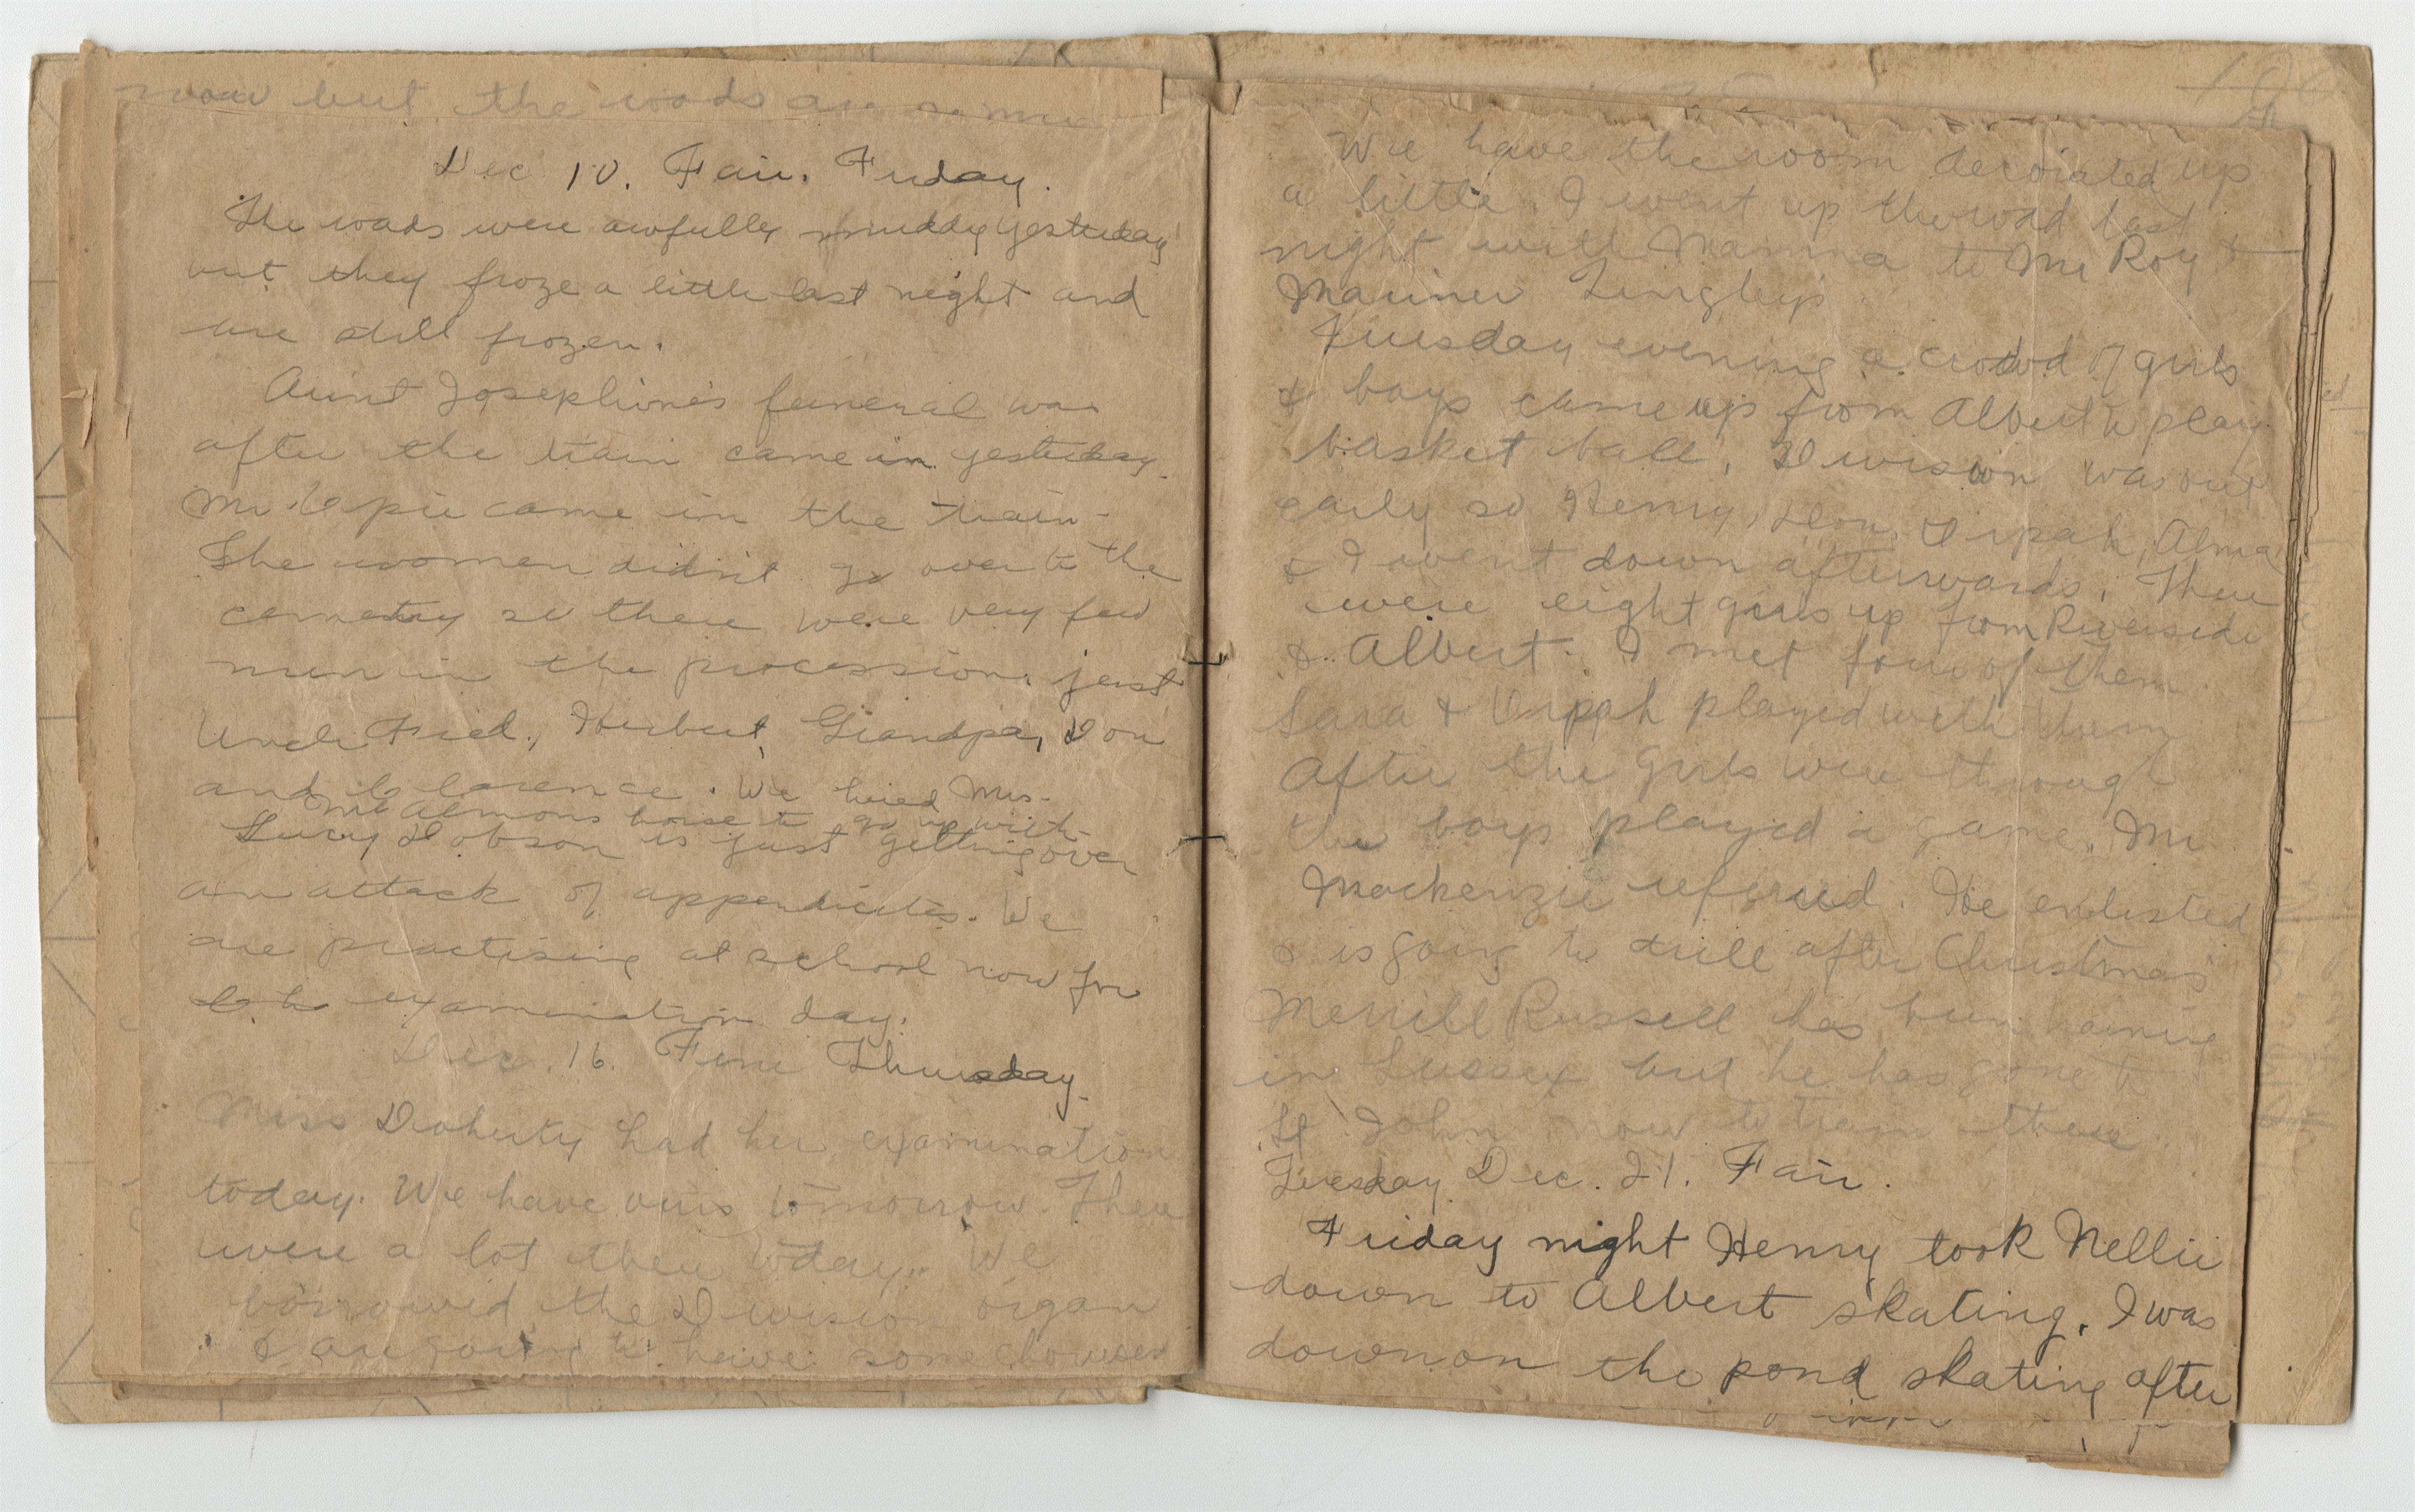 now but the roads are so mu
Dec 10. Fair. Friday.
The roads were awfully muddy yesterday
but they froze a little last night and
are still frozen.
Aunt Josephine's funeral was
after the train came in yesterday.
Mr. Opie came in the train.
The women didn't go over to the
cemetry so there were very few
men in the procession, just
Uncle Fred, Herbert, Grandpa, Don
and Clarence. We hired Mrs.
Almons horse to go up with
Lucy Dobson is just getting over
an attack of appendicites. We
are practising at school now for
the examination day.
Dec. 16. Fine Thursday.
Miss Doherty had her examination
today. We have ours tomorrow. There
were a lot there today. We
borrowed the Division organ
& are going to have some choruses
We have the room decorated up
a little. I went up the road last
night with Mamma to Mr Roy &
Mariner Tingley's
Tuesday evening a crowd of girls
& boys came up from Albert to play
basket ball. Division was out
early so Henry, Don, Orpah, Alma
& I went down afterwards. There
were eight girls up from Riverside
& Albert. I met four of them
Lara & Orpah played with them
After the girls were through
the boys played a game. Mr
Mackenzie refereed. He enlisted
& is going to drill after Christmas
Merrill Russell has been training
in Sussex but he has gone to
St John now to train there.
Tuesday Dec. 21. Fair.
Friday night Henry took Nellie
down to Albert skating. I was
down on the pond skating after